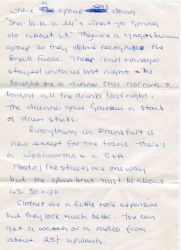 where the group was doing
"Sha-la-la-la-lee" & what ya gonna
do about it. There are a
group so they didn't recognise the
Small Faces. Their road manager
stayed with us last night & he
bought me a dinner this morning &
bought all the drinks last night.
The drummer gave Graham a stack
of drum sticks.
Everything in Frankfurt is
new except for the trams. There's
a Woolworths & a C&A
Most of the streets are one way
but the speed limit must be about
45-50 mph
Clothes are a little more expensive
but they look much better. You can
get a watch or a radio from
about 25/- upwards.